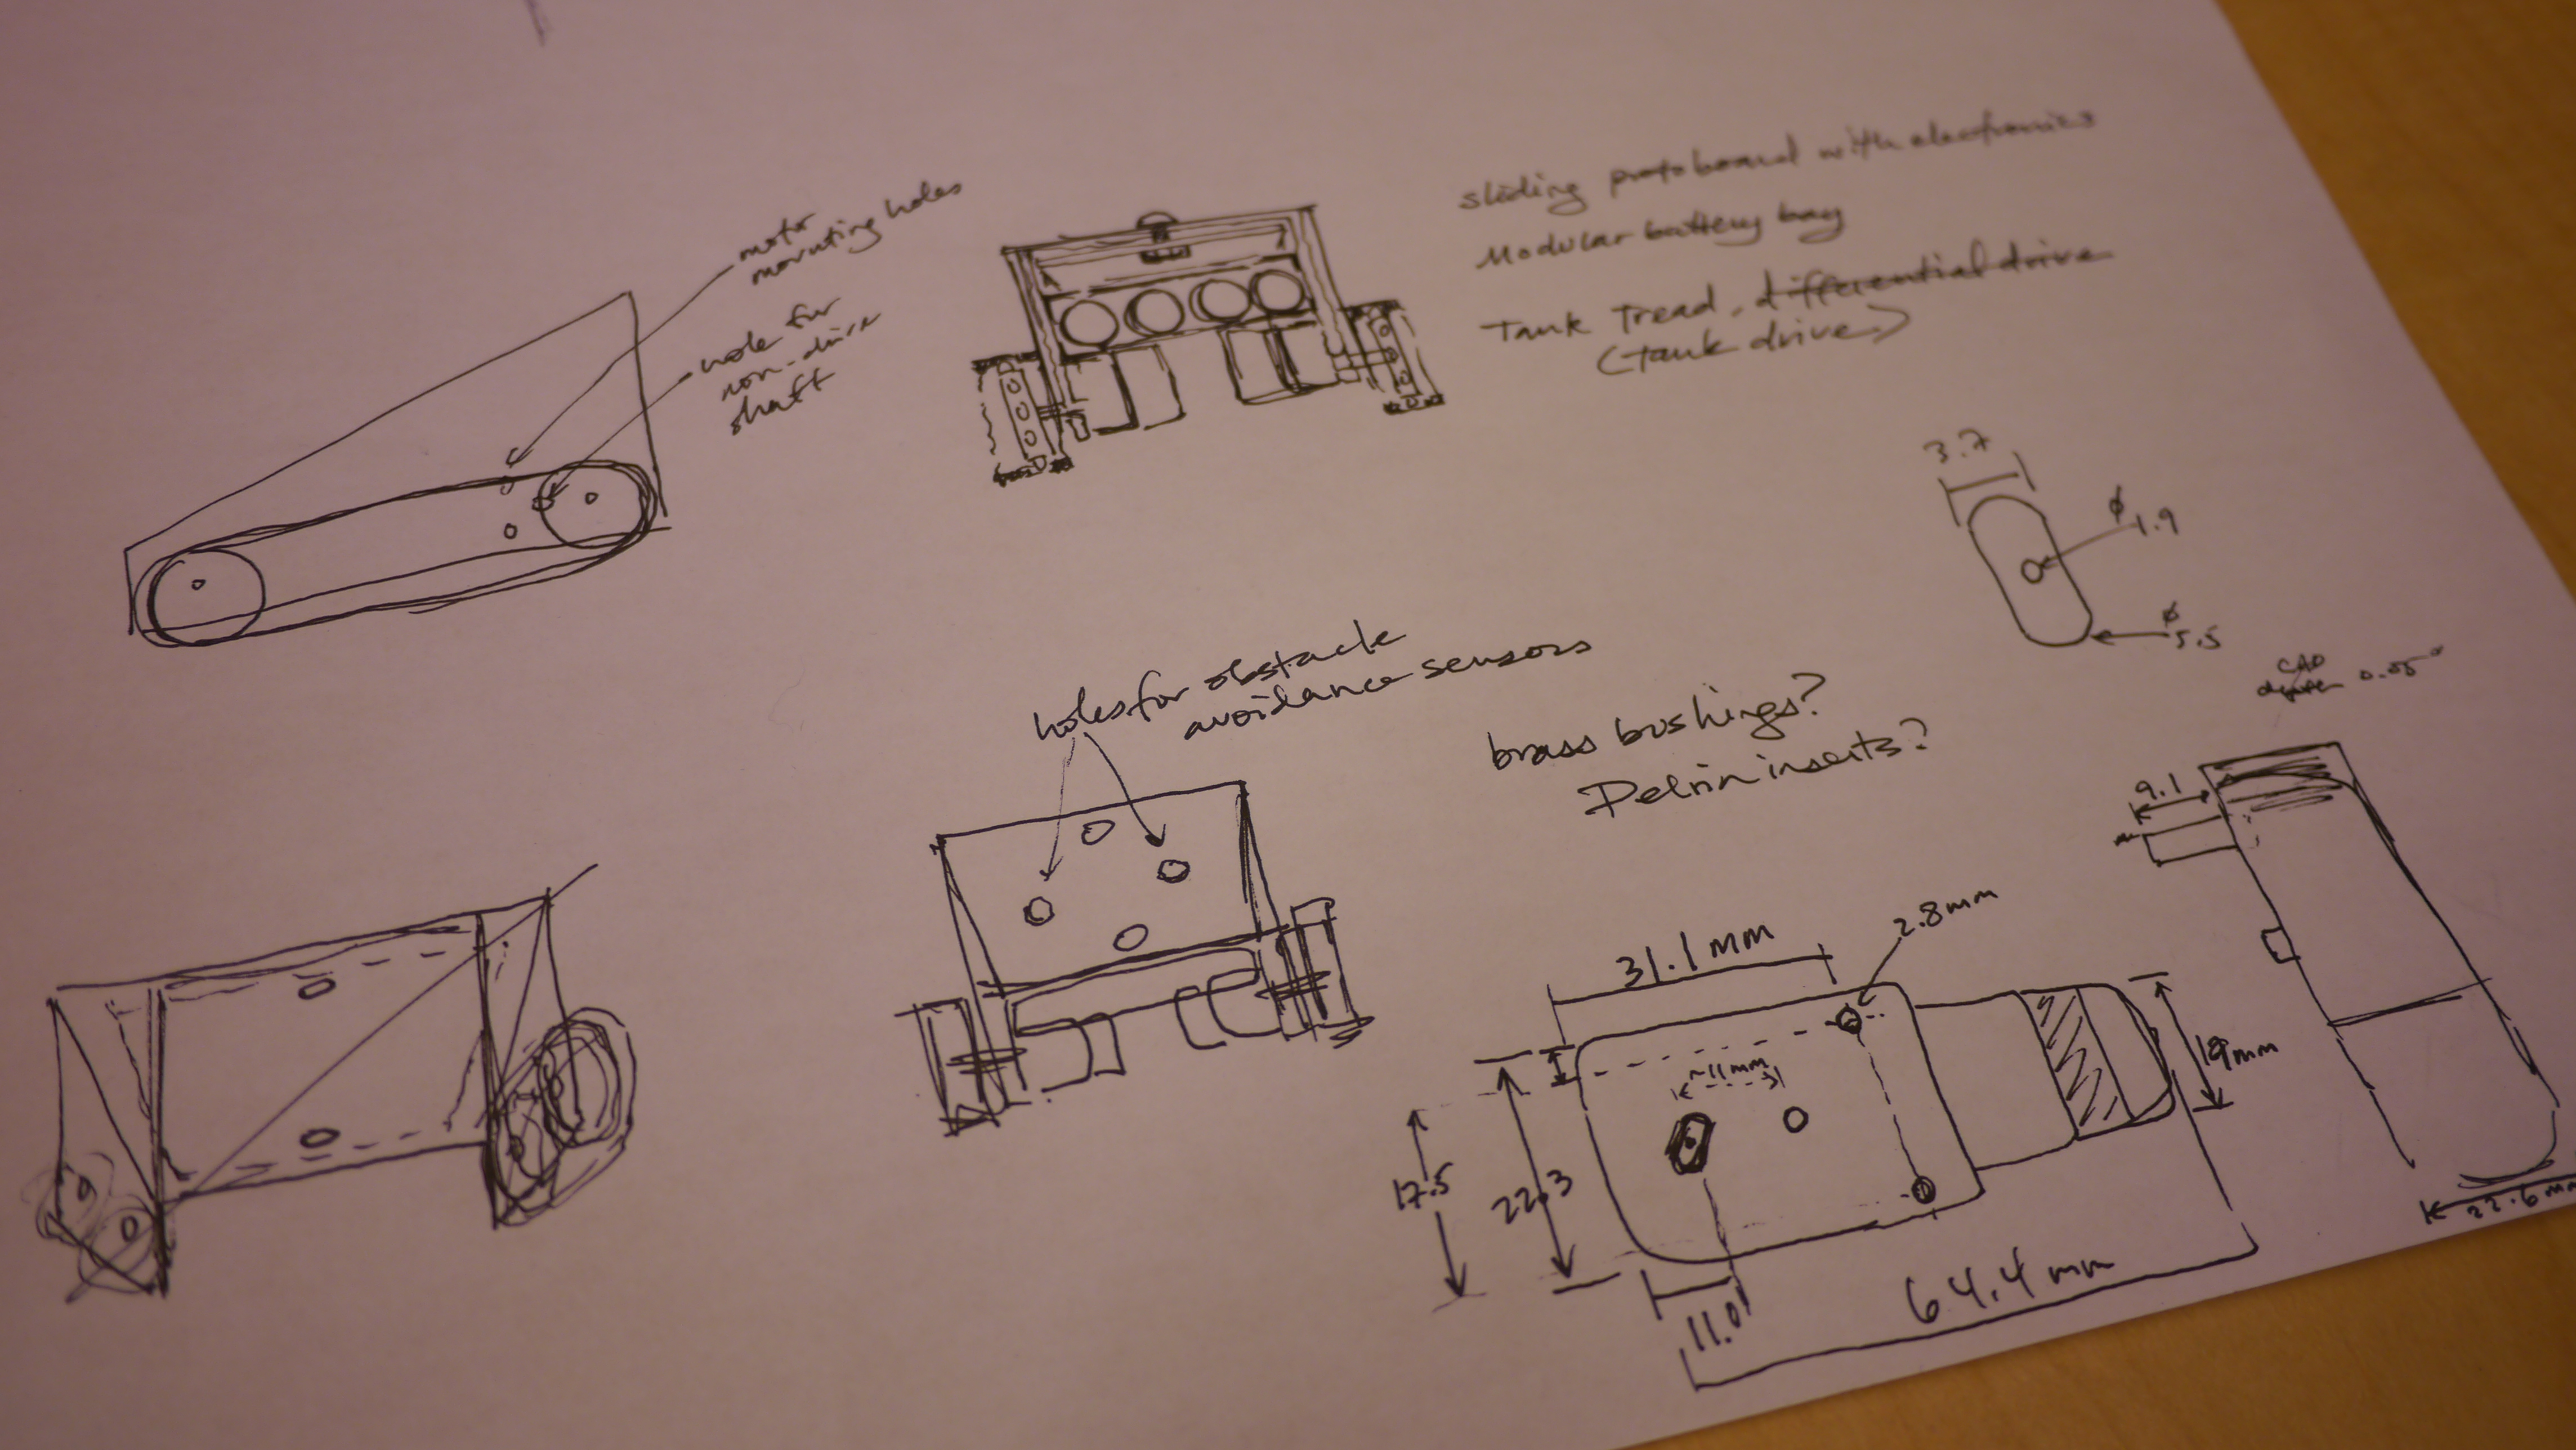 motor
mounting holes
hole for
non-drive
shaft
sliding protoboard with electronics
Modular battery bay
Tank Tread, differential drive
(tank drive)
3.7
ø
1.9
ø
5.5
holes for obstacle
avoidance sensors
brass bushings?
Delrin inserts?
CAD
0.05"
9.1
2.8mm
31.1 mm
~11mm
19mm
17.5
22.3
11.0
64.4 mm
22.6 mm